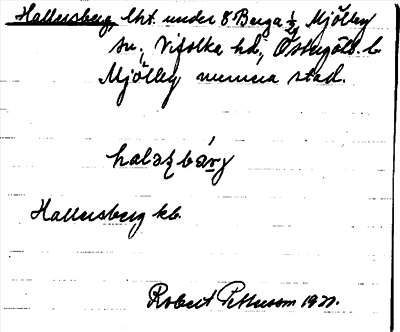 Hallersberg lht. under 8 Berga 1/2 Mjölby
sn, Vifolka hd, Östergötl. l.
Mjölby numera stad.
Hallersberg kb.
Robert Pettersson 19